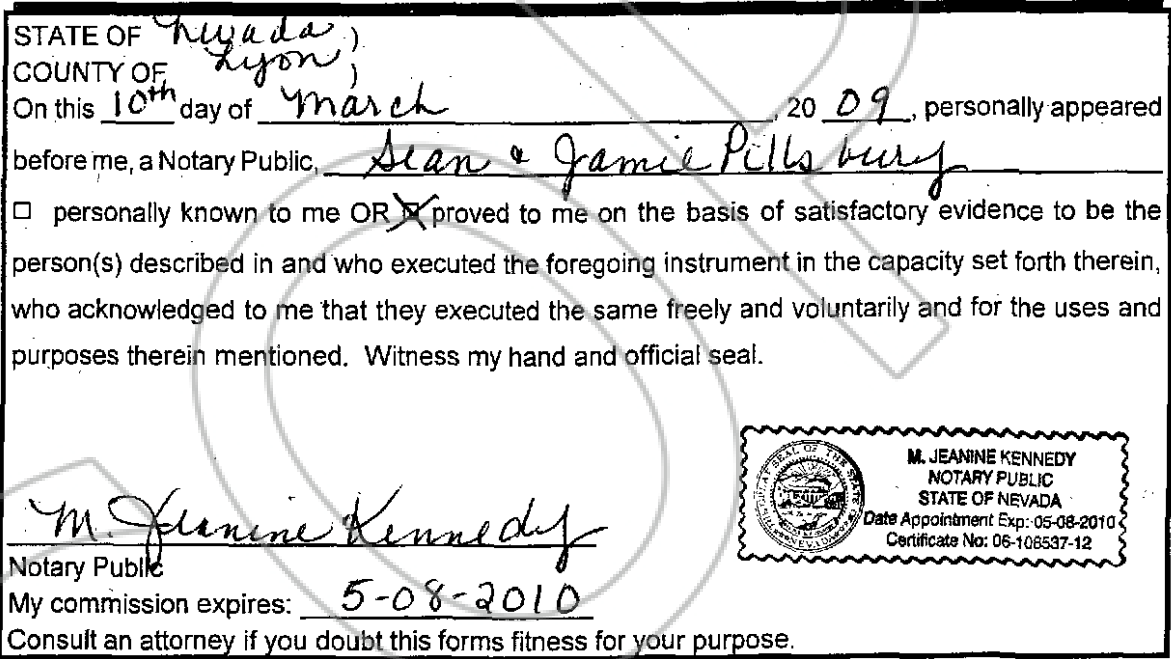 STATE OF Nevada )
COUNTY OF Lyon )
On this 10th day of March, 20 09, personally appeared
before me, a Notary Public, Sean & Jamie Pillsbury
☐ personally known to me OR ☒ proved to me on the basis of satisfactory evidence to be the
person(s) described in and who executed the foregoing instrument in the capacity set forth therein,
who acknowledged to me that they executed the same freely and voluntarily and for the uses and
purposes therein mentioned. Witness my hand and official seal.
M. JEANINE KENNEDY
NOTARY PUBLIC
STATE OF NEVADA
Date Appointment Exp: 05-08-2010
Certificate No: 06-106537-12
M. Jeanine Kennedy
Notary Public
My commission expires: 5-08-2010
Consult an attorney if you doubt this forms fitness for your purpose.